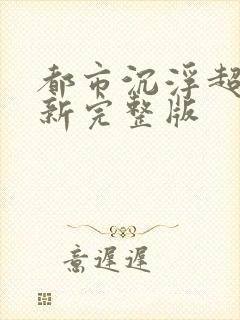 都市沉浮超
新完整版
意遲遲